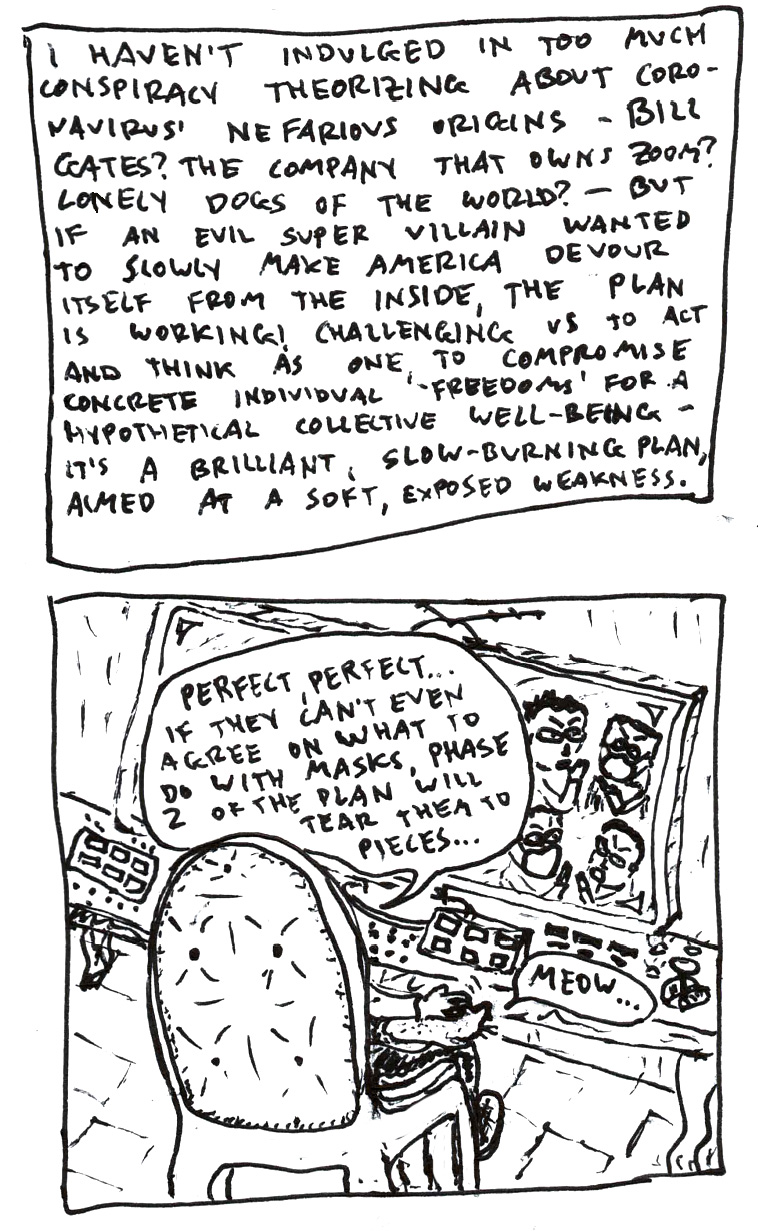 I HAVEN'T INDULGED IN TOO MUCH
CONSPIRACY THEORIZING ABOUT CORO-
NAVIRUS' NEFARIOUS ORIGINS - BILL
GATES? THE COMPANY THAT OWNS ZOOM?
LONELY DOGS OF THE WORLD? - BUT
IF AN EVIL SUPER VILLAIN WANTED
TO SLOWLY MAKE AMERICA DEVOUR
ITSELF FROM THE INSIDE, THE PLAN
IS WORKING! CHALLENGING US TO ACT
AND THINK AS ONE, TO COMPROMISE
CONCRETE INDIVIDUAL '-FREEDOMS' FOR A
HYPOTHETICAL COLLECTIVE WELL-BEING -
IT'S A BRILLIANT, SLOW-BURNING PLAN,
AIMED AT A SOFT, EXPOSED WEAKNESS.
PERFECT, PERFECT...
IF THEY CAN'T EVEN
AGREE ON WHAT TO
DO WITH MASKS, PHASE
2 OF THE PLAN WILL
TEAR THEM TO
PIECES...
MEOW...